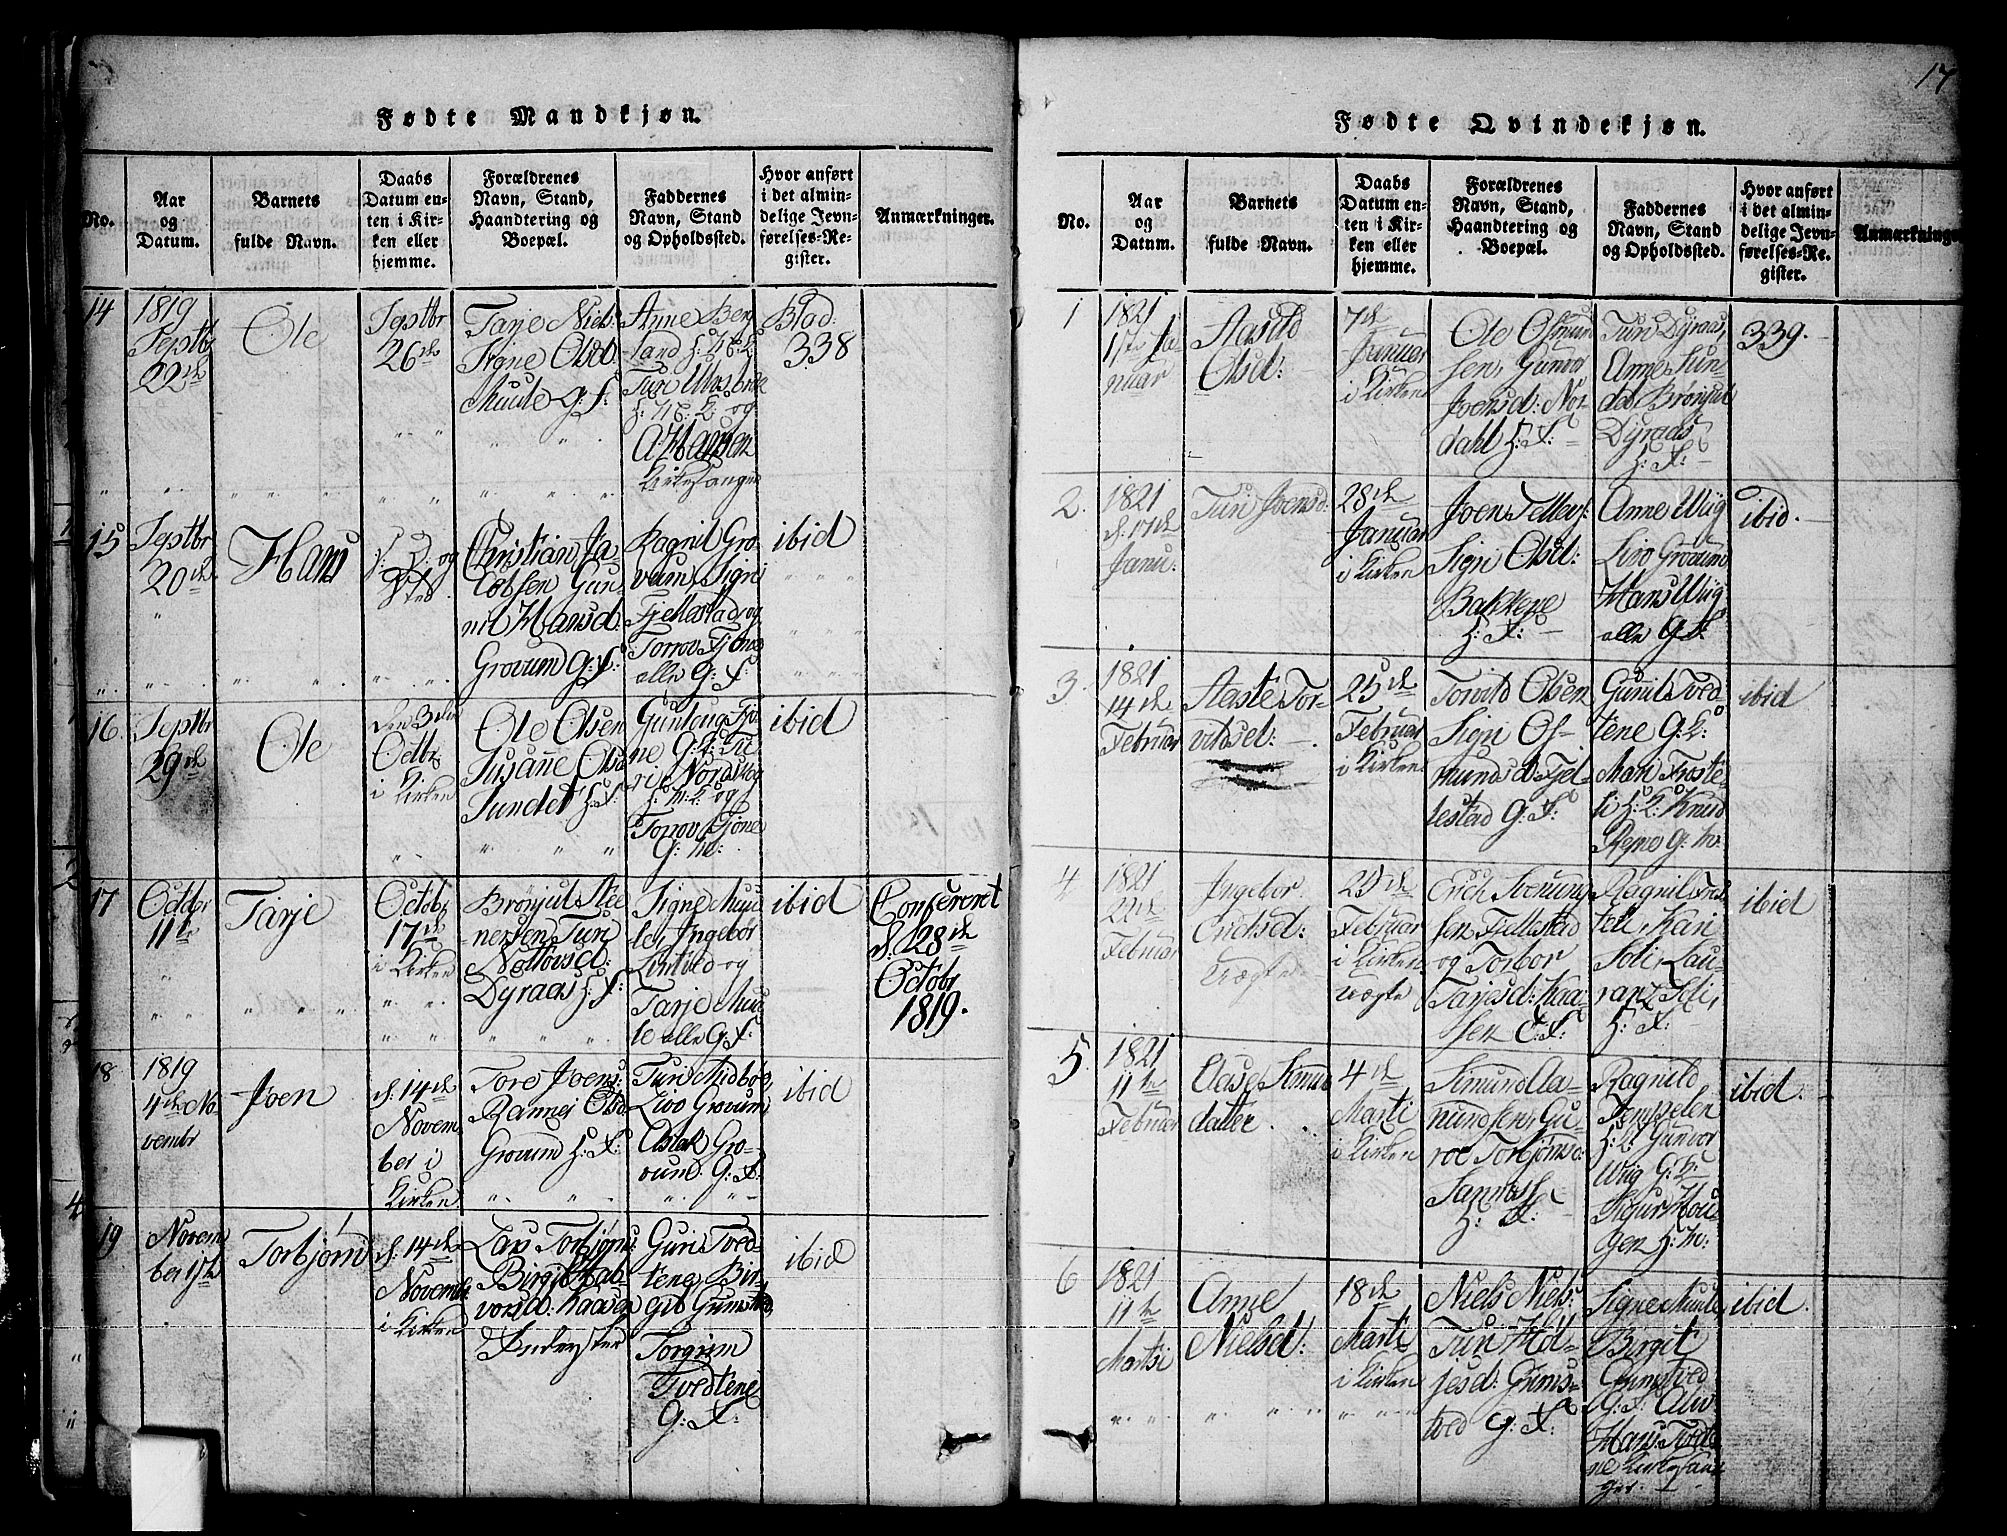 17
Fødte Mandkjøn.
No.
Aar
og
Datum.
Barnets
fulde Navn.
Daabs
Datum en-
ten i Kir-
ken eller
hjemme.
Forældrenes
Navn, Stand,
Haandtering og
Boepæl.
Faddernes
Navn, Stand
og Opholdssted.
Hvor anført
i det almin-
delige Jevn-
førelses-Re-
gister.
Anmærkninger.
14
1819
Septbr
22de
Ole
Septbr
26de
Tarje Niels:
Signe Olsd:
Muule G: F:
Anne Berg
land
Turi
og
A: Hansen
Kirkesanger
Blad:
338
15
Septbr
20de
Hans
Christian Ja
cobsen Gun-
nil Hansd:
Grovum G: F:
Ragnil Gro
vum, Signi
Fjellestad, og
Torrov Fjone
alle G: F:
ibid
16
Septbr
29de
Ole
den 3die
Octbr
i Kirken
Ole Olsen
Susanne Olsd
Sundet H: F:
Gunlaug Fjo
ne G: K: Tu
rie Nordskog
H: M: K: og
Torrov Fjone
G: M:
ibid
17
Octbr
11te
Tarje
Octobr
17de
i Kirken
Brønjul Ste
nersen Turi
Nottovsd:
Dyraas H: F:
Signe Muu
le, Ingebor
Lintved og
Tarje Muu
le alle G: F:
ibid
Confereret
d: 28de
Octobr
1819.
18
1819
4de No
vembr
Joen
d. 14de
Novem
ber i
Kirken
Tore Joens:
Rannei Olsd
Grovum H: F:
Turi Midboe,
Livo Grovum
Aslak Gro-
vum G: F:
ibid
19
Novem
ber 1ste
Torbjørn
d. 14de
Novembr
i Kirken
Lars Torbjøns:
Birgit Hal-
vorsd: Kaasen
Guri Tved-
tene, Bir-
git Grimstved
Torgrim
Tvedtene
G: F:
ibid
Fødte Qvindekjøn.
No.
Aar
og
Datum.
Barnets
fulde Navn.
Daabs
Datum en-
ten i Kir-
ken eller
hjemme.
Forældrenes
Navn, Stand,
Haandtering og
Boepæl.
Faddernes
Navn, Stand
og Opholdssted.
Hvor anført
i det almin-
delige Jevn-
førelses-Re-
gister.
Anmærkninger
1
1821
1ste Ja-
nuar
Aasild
Olsd:
7de
Januar
i Kirken
Ole Osmund
sen, Gunvor
Joensd: Nor
dahl H: F:
Turi Dyraas,
Anne Sun-
det Brønjul
Dyraas
H: F:
339.
2.
1821
d. 17de
Janu:
Turi Joensd:
28de
Januar
i Kirken
Joen Tellevs:
Sign Olsd:
Bakkene
H: F:
Anne Wiig
Livo Grovum
Hans Wiig
alle G: F:
ibid.
3.
1821
14de
Februar
Aaste Tor-
vildsd:
25de
Februar
i Kirken
Torvild Olsen
Sign Os-
mundsd Fjel-
lestad G: F:
Gunil Tved
tene G: K:
Mari Froste
li H: K: Knud
Rejne G: M:
ibid
4
1821
22de
Februar
Ingebor
Erichsd:
Uægte
25de
Februar
i Kirken
uægte
Erich Svenung
sen Fjellestad
og Torbor
Tarjesd: Kaa-
sen E: F:
Ragnil
Kari
Soli, Lau-
ranz Soli,
H: F:
ibid
5
1821
11te
Februar
Aase Simun
datter
4de
Marti
i Kirken
Simund Aa-
nundsen, Gu-
roe Torbjørnsd:
H: F:
Ragnild
Tempelen
H: K: Gunvor
Wiig G: K:
Sigur Hou
gen H: M:
ibid.
6
1821
11te
Martsi
Anne
Nielsd:
18de
Marti
i Kirken
Niels Niels:
Turi Hel-
jesd: Grims-
tved G: F:
Signe Muule,
Birgit
Grimstved
G: F:
Hans Tvedte
ne Kirkesan
ger.
ibid.